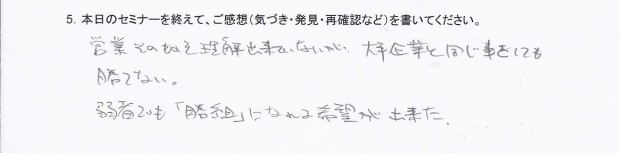 5. 本日のセミナーを終えて、ご感想(気づき・発見・再確認など)を書いてください。
営業そのものを理解出来ていないが、大手企業と同じ事をしても
勝てない。
弱者でも「勝組」になれる希望が出来た。